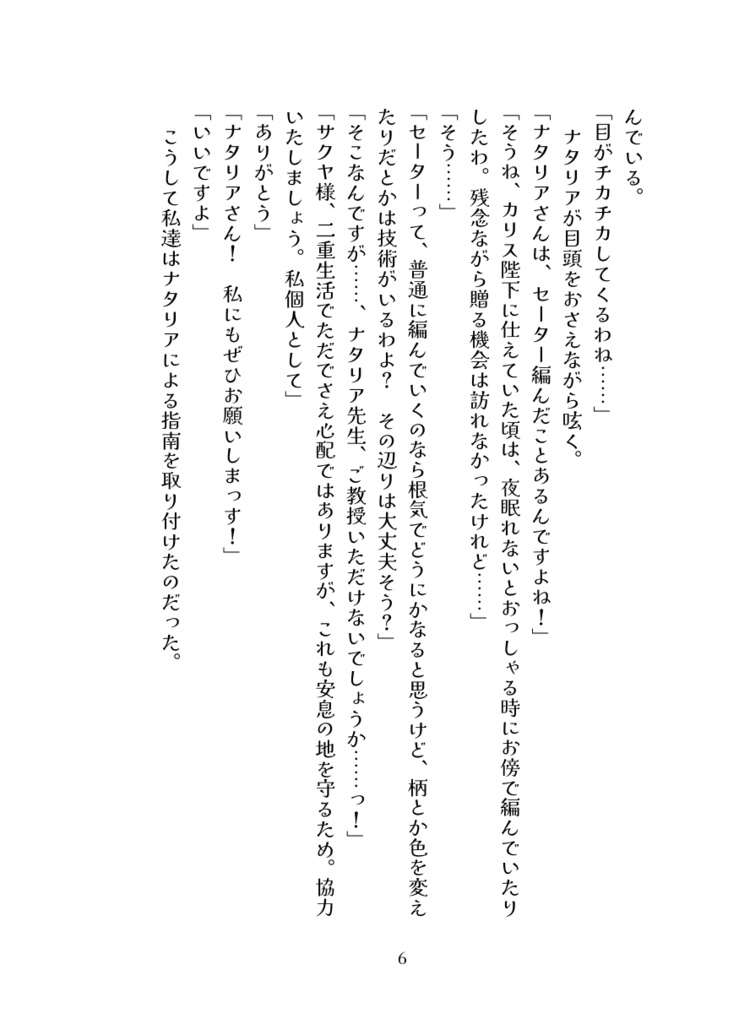 んでいる。
「目がチカチカしてくるわね……」
　ナタリアが目頭をおさえながら呟く。
「ナタリアさんは、セーター編んだことあるんですよね！」
「そうね、カリス陛下に仕えていた頃は、夜眠れないとおっしゃる時にお傍で編んでいたり
したわ。残念ながら贈る機会は訪れなかったけれど……」
「そう……」
「セーターって、普通に編んでいくのなら根気でどうにかなると思うけど、柄とか色を変え
たりだとかは技術がいるわよ？　その辺りは大丈夫そう？」
「そこなんですが……、ナタリア先生、ご教授いただけないでしょうか……っ！」
「サクヤ様、二重生活でただでさえ心配ではありますが、これも安息の地を守るため。協力
いたしましょう。私個人として」
「ありがとう」
「ナタリアさん！　私にもぜひお願いしまっす！」
「いいですよ」
　こうして私達はナタリアによる指南を取り付けたのだった。
6